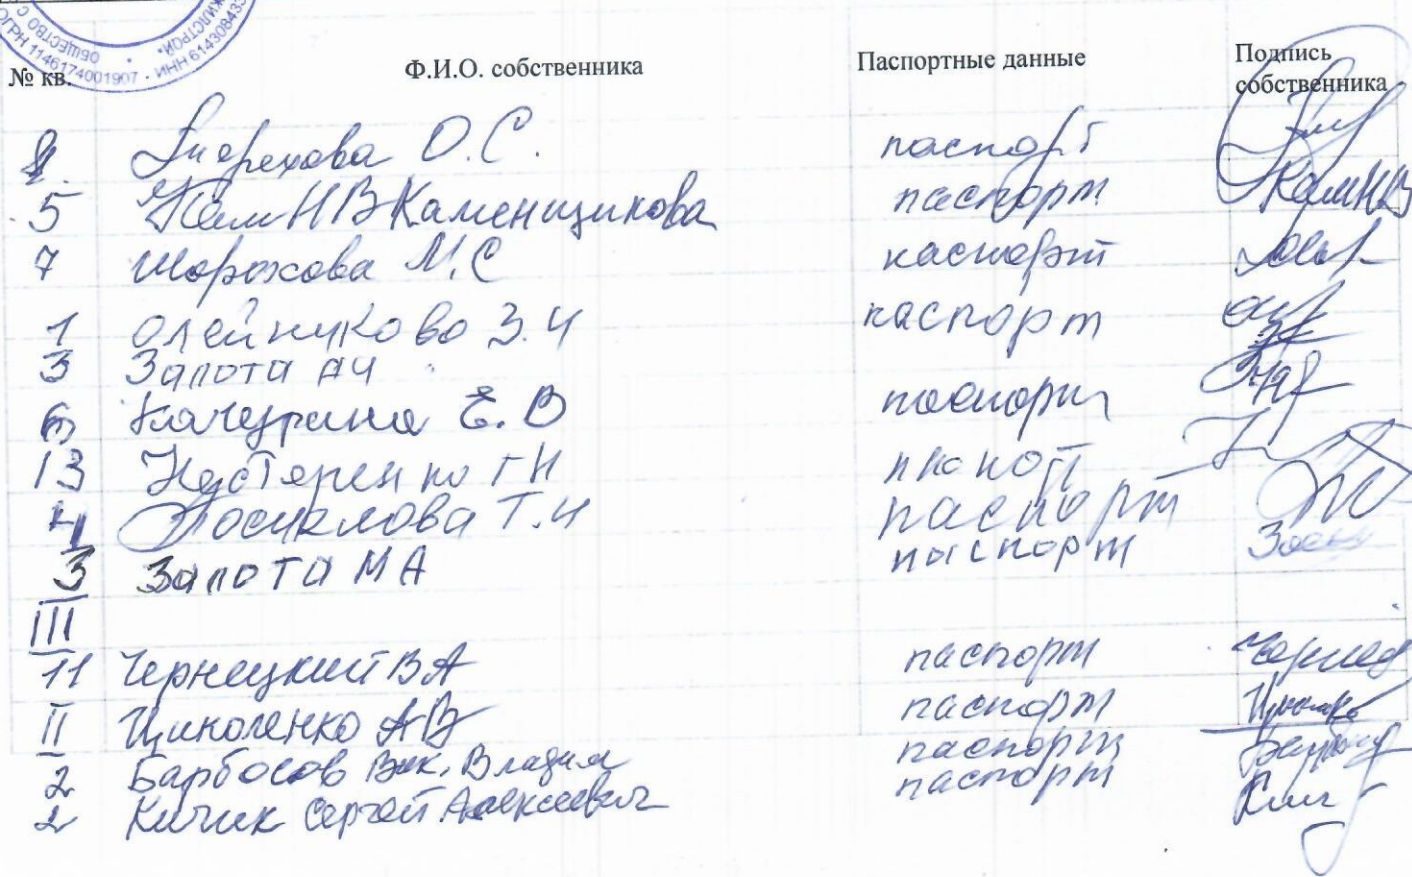 ОБЩЕСТВО С
ОГРН 1146174001907 - ИНН 614308433
№ кв. Ф.И.О. собственника Паспортные данные Подпись собственника
О.С. паспорт
5 Н В Каменщикова паспорт
7 Шорохова М.С паспорт
1 Олейникова З.И паспорт
3 Запота АИ
6 Качурина Е.В паспорт
13 Нестеренко ГН
4 Посикалова Т.И паспорт
3 Запота МА паспорт
III
11 Чернецкий В А паспорт
II Циколенко А В паспорт
2 Барбосов Вик. Владим паспорт
2 Кичик Сергей Алексеевич паспорт